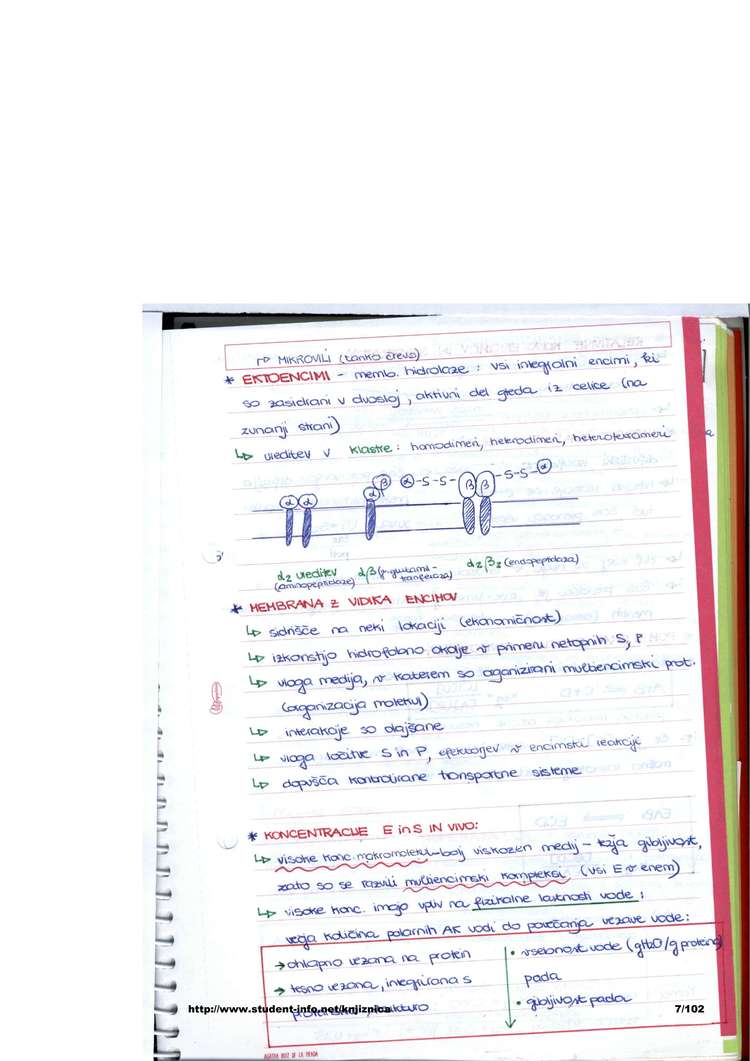 ↳ MIKROVILI (tanko črevo)
* EKTOENCIMI - memb. hidrolaze : vsi integralni encimi, ki
so zasidrani v dvosloj, aktivni del gleda iz celice (na
zunanji strani)
↳ ureditev v klastre : homodimeri, heterodimeri,
α α α β α -S-S- β β -S-S- α
α2 ureditev αβ (γ-glutamil- α2β2 (endopeptidaza)
(aminopeptidaze) transferaza)
* MEMBRANA Z VIDIKA ENCIMOV
↳ sidrišče na neki lokaciji (ekonomičnost)
↳ izkoristijo hidrofobno okolje v primeru netopnih S, P
↳ vloga medija, v katerem so organizirani multiencimski prot.
(organizacija molekul)
↳ interakcije so olajšane
↳ vloga ločitve S in P, efektorjev v encimski reakciji
↳ dopušča kontrolirane transportne sisteme
* KONCENTRACIJE E in S IN VIVO:
↳ visoke konc. makromolekul - bolj viskozen medij - težja gibljivost,
zato so se razvili multiencimski kompleksi (vsi E v enem)
↳ visoke konc. imajo vpliv na fizikalne lastnosti vode :
večja količina polarnih AK vodi do povečanja vezave vode:
→ ohlapno vezana na protein
→ tesno vezana, integrirana s
proteinsko strukturo
• vsebnost vode (gH2O/g proteina)
pada
• gibljivost pada
http://www.student-info.net/knjiznica 7/102
AGATHA RUIZ DE LA PRADA